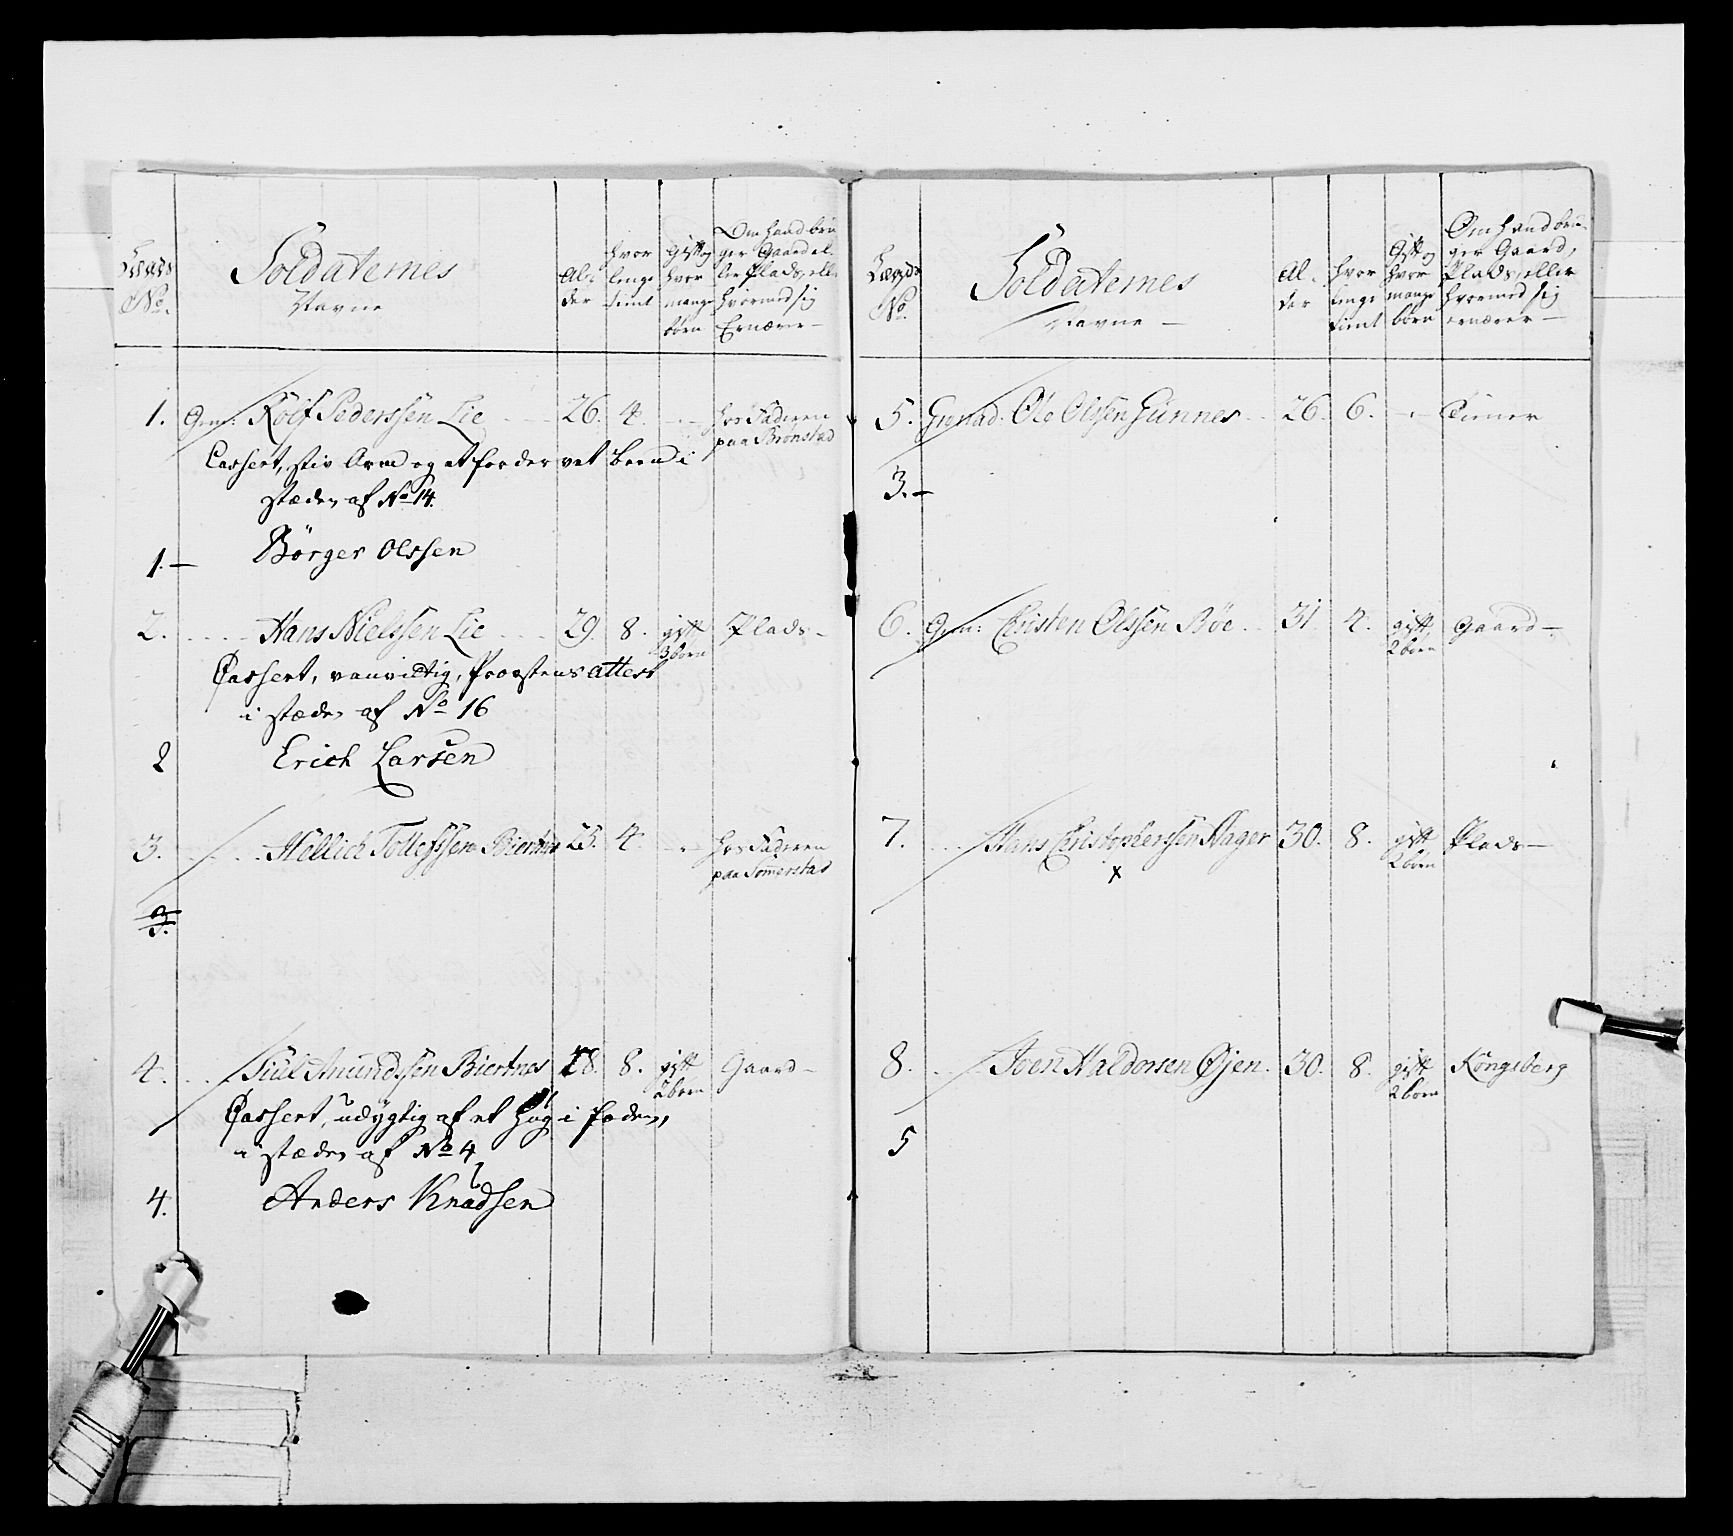 Lægds No.
Soldaternes Navne
Alder
hvor længe tient
Gift og hvor mange børn
Om hand bruger Gaard eller Plads, eller hvormed sig Ernærer —
1. Gem: Rolf Pederssen Lie 26. 4. hos Faderen
paa Bronstad
Cassert, stiv Arm og et fordervet been i
stæden af No 14.
1.— Börger Olssen
2. Hans Nielssen Lie 29 8. gift Plads —
3 børn
Cassert, vanvittig, Provstens attest
i stæden af No 16
2 Erich Larsen
3. Hellich Tollefssen Biertnes 23. 4. hos Faderen
paa Somerstad
3.
4. Siul Amundssen Biertnes 28. 8. gift Gaard —
2 børn
Cassert, udygtig af et hug i foden,
i stæden af No 4
4. Anders Knudsen
Lægds No.
Soldaternes Navne —
Alder
hvor længe tient
Gift og hvor mange børn
Om hand bruger Gaard, Plads, eller hvormed sig ernærer —
5. Grenad: Ole Olssen Gunnes 26. 6. Tiener
3.—
6. Gem: Christen Olssen Bøe 31 4. gift Gaard —
2 børn
7. Hans Christopherssen Hager 30. 8. gift Plads —
2 børn
x
8. Joen Haldorsen Øjen. 30. 8. gift Kongsberg
2 børn
5